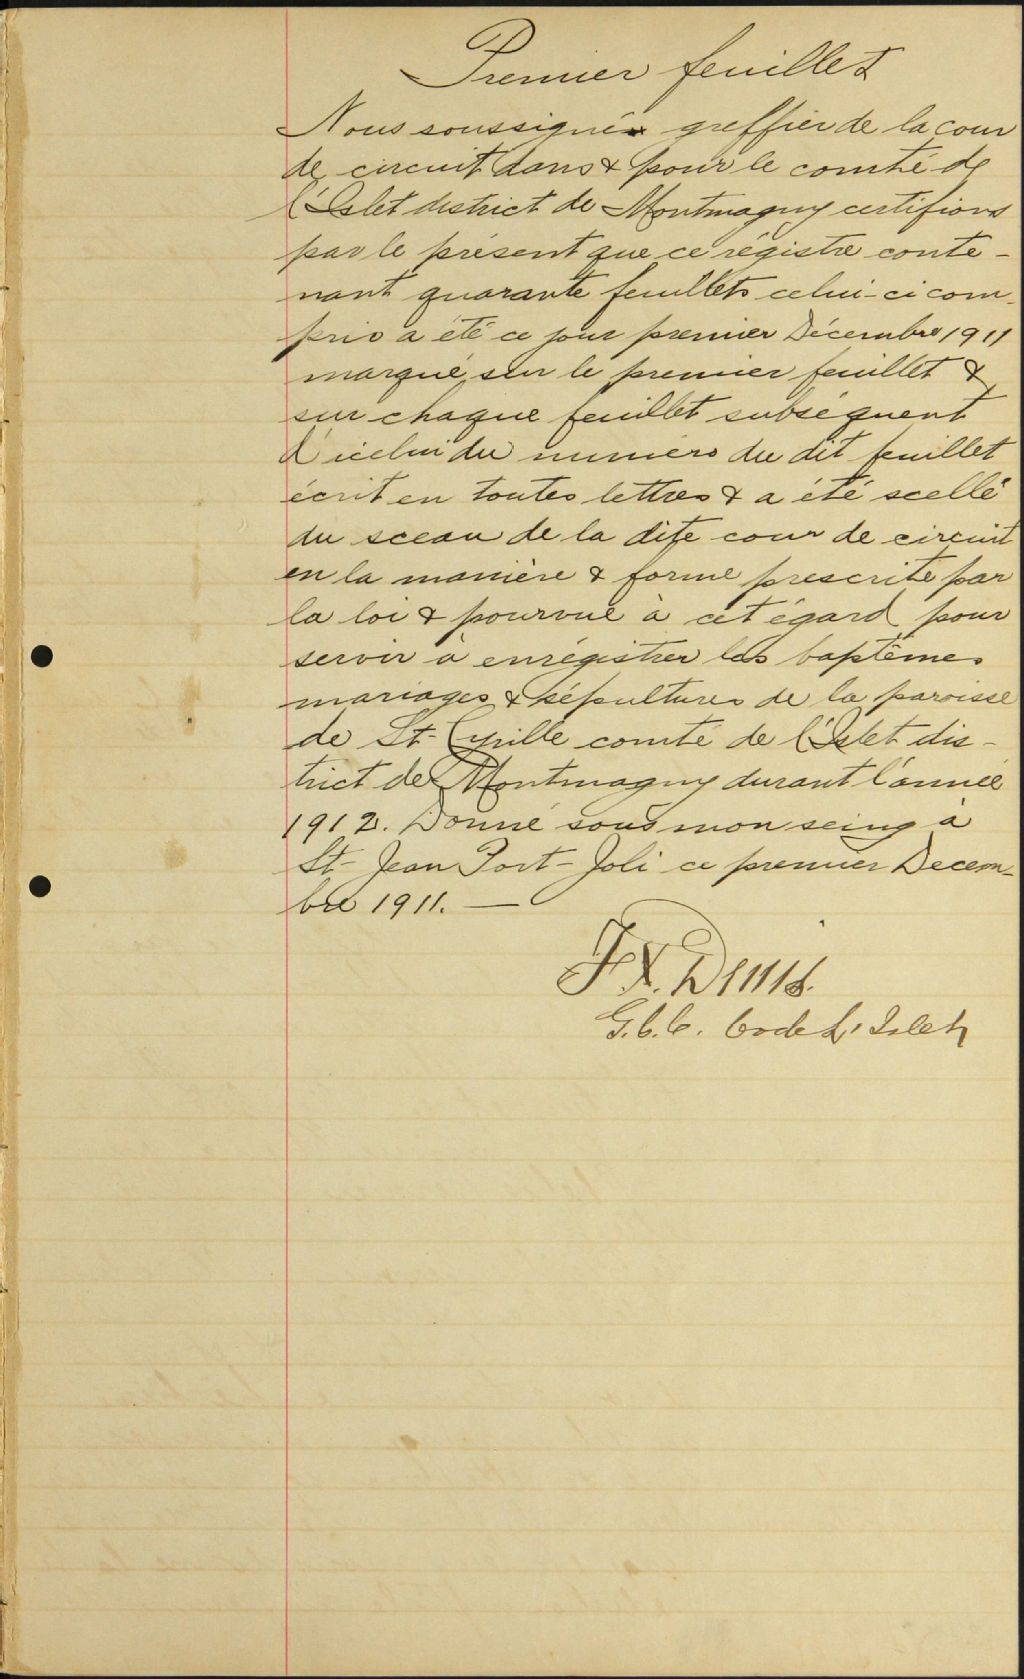 Premier feuillet
Nous soussigné greffier de la cour
de circuit dans & pour le comté de
l'Islet district de Montmagny certifions
par le présent que ce régistre conte-
nant quarante feuillets celui-ci com-
pris a été ce jour premier Décembre 1911
marqué sur le premier feuillet &
sur chaque feuillet subséquent
d'icelui du numéro du dit feuillet
écrit en toutes lettres & a été scellé
du sceau de la dite cour de circuit
en la manière & forme prescrite par
la loi & pourvue à cet égard pour
servir à enrégistrer les baptêmes
mariages & sépultures de la paroisse
de St-Cyrille comté de l'Islet dis-
trict de Montmagny durant l'année
1912. Donné sous mon seing à
St-Jean Port-Joli ce premier Decem-
bre 1911. —
F X. Denis.
G.C.C. Co de L'Islet